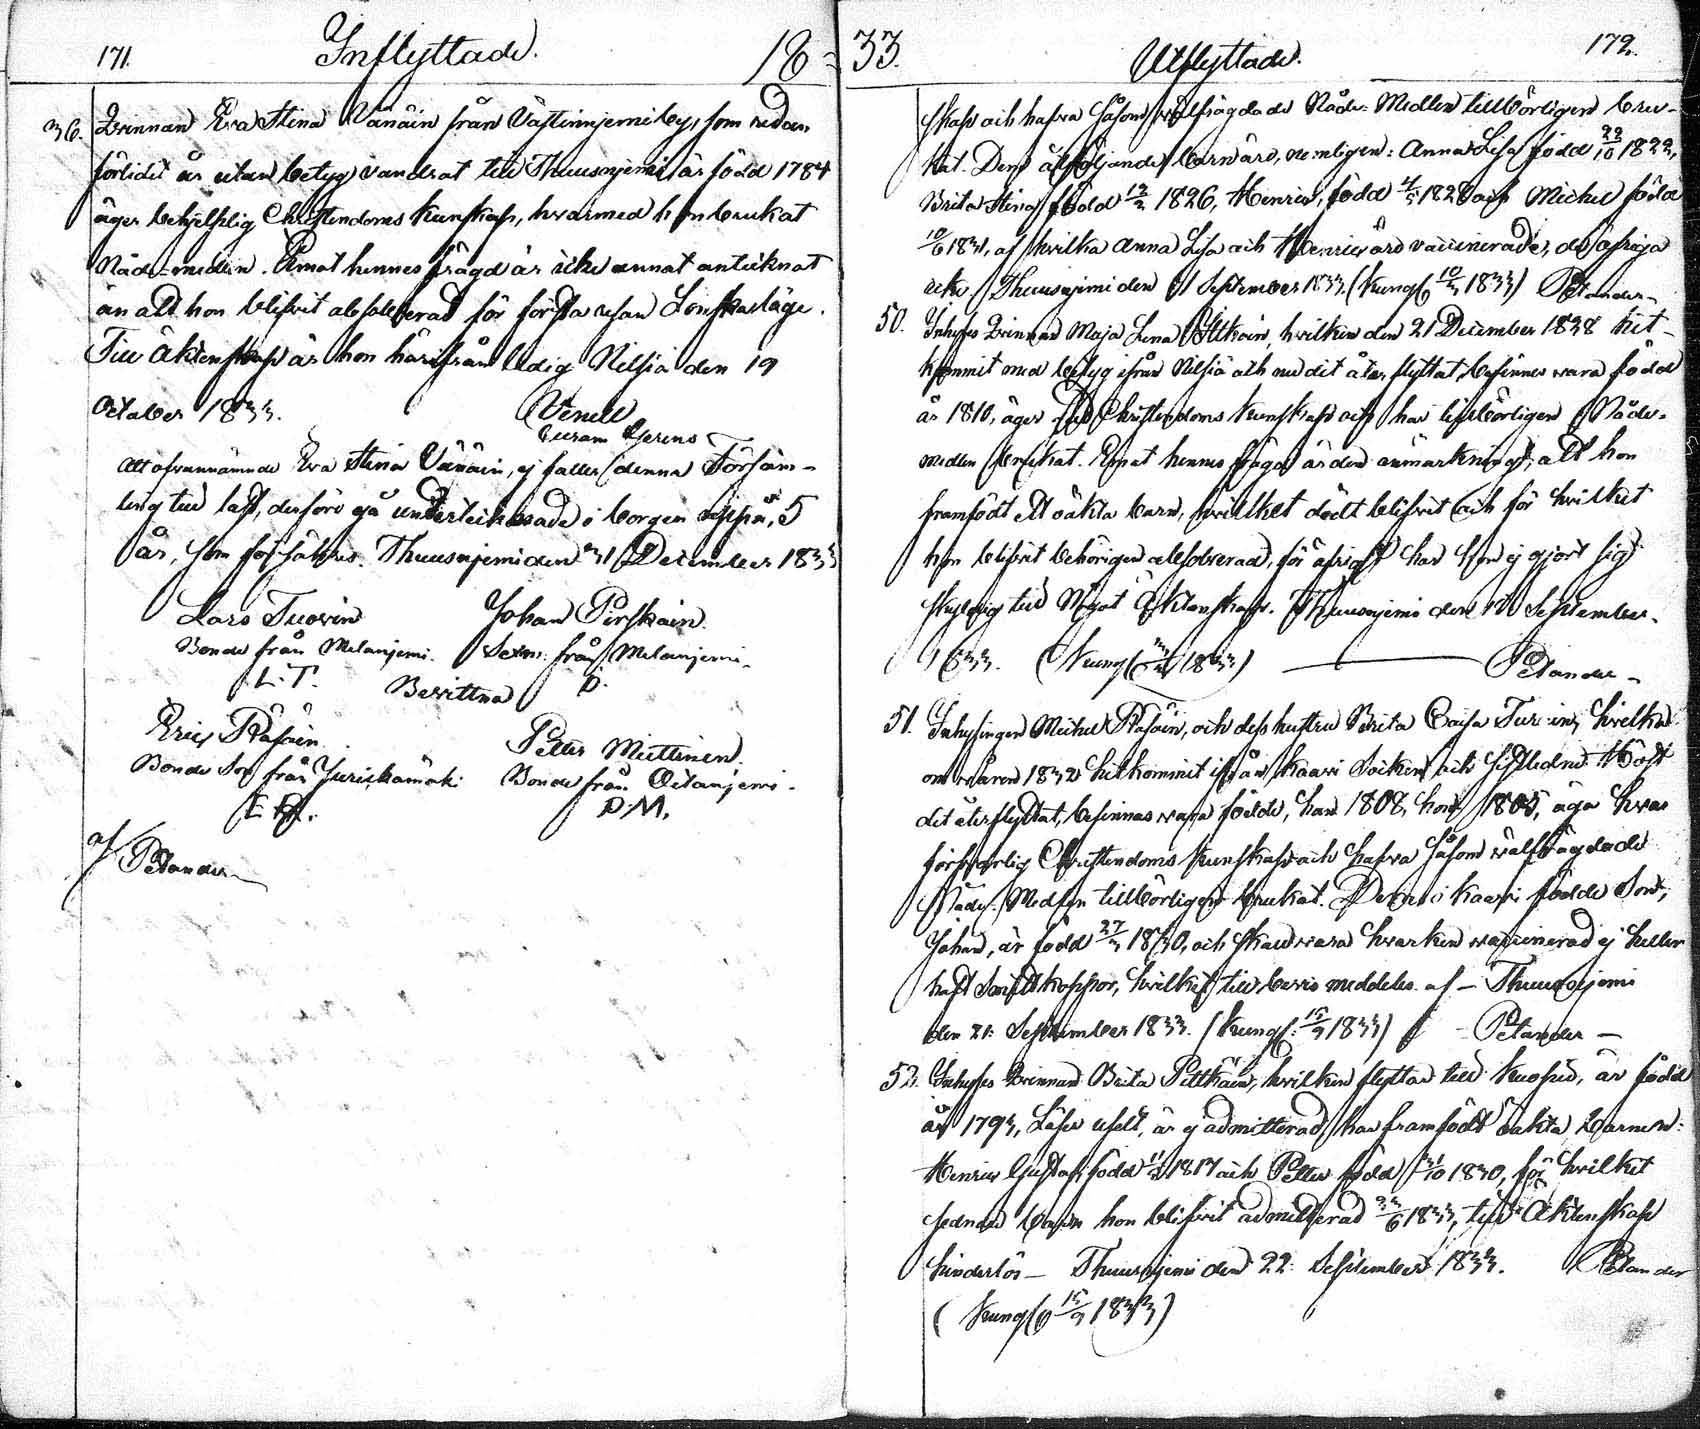 171. Inflyttade. 18
36. Qvinnan Eva Stina Vänäin från Västinniemi by, som redan
förlidit år utan betyg vandrat till Thuusnjemi är född 1784
äger behjelplig Christendoms Kunskap, hvarmed hon brukat
Nåde-medlen. Emot hennes frägd är icke annat antecknat
än att hon blifvit absolverad för första resan Lönskaläge.
Till Äktenskap är hon härifrån ledig Nilsiä den 19
October 1833. Venell
Curam Gerens
Att ofvannämnde Eva Stina Vänäin, ej faller denna Försam-
ling till last, derföre gå undertecknade i borgen uppå, 5
år, som försäkras. Thuusnjemi den 31 December 1833
Lars Tuovin Johan Pirskain.
Bonde från Melanjemi. Sexm: från Melanjemi.
L.T. Bevittna P.
Eric Räsäin Petter Miettinen.
Bonde Son från Jurickamäki Bonde från Oetanjemi.
E R. P.M.
af Petander
33. Utflyttade. 172.
skap och hafva såsom välfrägdade Nåde-Medlen tillbörligen bru-
kat. Dess åtföljande barn äro, nemligen: Anna Lisa född 22/10 1822,
Brita Stina född 12/2 1826, Henric, född 4/5 1828 och Michel född
10/6 1831, af hvilka Anna Lisa och Henric äro vaccinerade, de öfriga
icke. Thuusnjemi den 1 September 1833. (Kungf 10/3 1833) Petander
50. Inhyses Qvinnan Maja Lena Itkoin, hvilken den 21 December 1828 hit-
kommit med betyg ifrån Nilsiä och nu dit återflyttat, befinnes vara född
år 1810, äger Christendoms Kunskap och har tillbörligen Nåde-
medlen brukat. Emot hennes frägd är den anmärkning, att hon
framfödt ett oäkta barn, hvilket dödt blifvit och för hvilket
hon blifvit behörigen absolverad, för öfrigt har hon ej gjort sig
skyldig till Något Äktenskap. Thuusnjemi den 12 September.
1833. (Kungf 1833) Petander
51. Inhysingen Michel Räsäin, och dess hustru Brita Caisa Tur in, hvilka
om våren 1832 hitkommit ifrån Kaavi Socken och sistledne Höst
dit återflyttat, befinnas vara födde, han 1808, hon 1805, äga hvar
försvarlig Christendoms Kunskap och hafva såsom välfrägdade
Nåde-Medlen tillbörligen brukat. Deras i Kaavi födde Son,
Johan, är född 27/3 1830, och skall vara hvarken vaccinerad ej heller
haft Smittkoppor, hvilket till bevis meddeles af — Thuusnjemi
den 21: September 1833. (Kungf: 15/9 1833) Petander —
52. Inhyses Qvinnan Brita Pitkäin, hvilken flyttar till Kuopio, är född
år 1793, Läser uselt, är ej admitterad har framfödt oäkta barnen:
Henric Gustaf, född 11/2 1817 och Petter född 31/10 1830, för hvilket
sednare barn hon blifvit admitterad 23/6 1833, till Äktenskap
hinderlös — Thuusnjemi den 22: September 1833. Petander
(Kungf 15/9 1833)